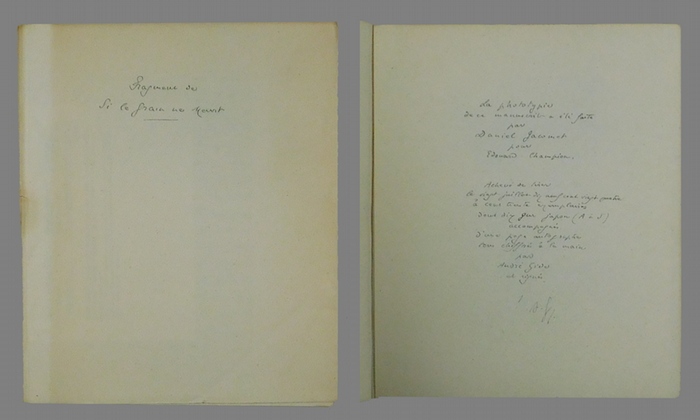 Fragment de
Si le grain ne Meurt
La phototypie
de ce manuscrit a été faite
par
Daniel Jacomet
pour
Edouard Champion.
Achevé de tirer
le vingt juillet dix neuf cent vingt quatre
à cent trente exemplaires
dont dix sur Japon (A à J)
accompagnés
d'une page autographe
tous chiffrés à la main
par
André Gide
et signés